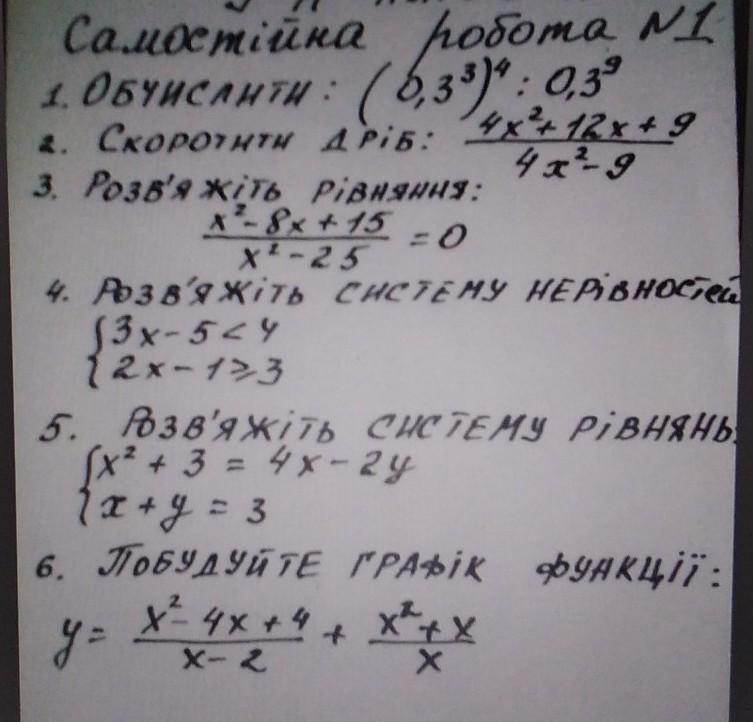 Самостійна робота №1
1. Обчислити: (0,3³)⁴ : 0,3⁹
2. Скоротити дріб: (4x² + 12x + 9)/(4x² - 9)
3. Розв'яжіть рівняння:
(x² - 8x + 15)/(x² - 25) = 0
4. Розв'яжіть систему нерівностей
{3x - 5 < 4
{2x - 1 ⩾ 3
5. Розв'яжіть систему рівнянь:
{x² + 3 = 4x - 2y
{x + y = 3
6. Побудуйте графік функції:
y = (x² - 4x + 4)/(x - 2) + (x² + x)/x